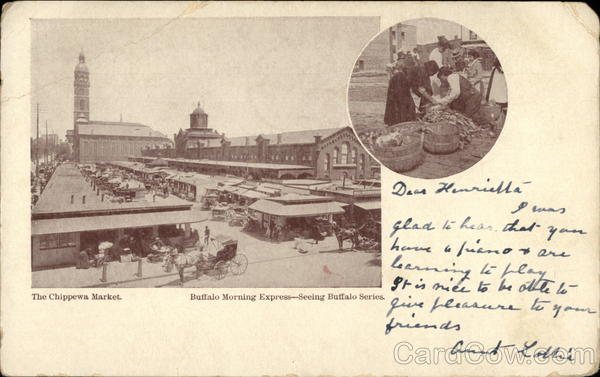 The Chippewa Market.
Buffalo Morning Express—Seeing Buffalo Series.
Dear Henrietta
I was
glad to hear that you
have a piano & are
learning to play
It is nice to be able to
give pleasure to your
friends
Aunt Lottie
CardCow.com